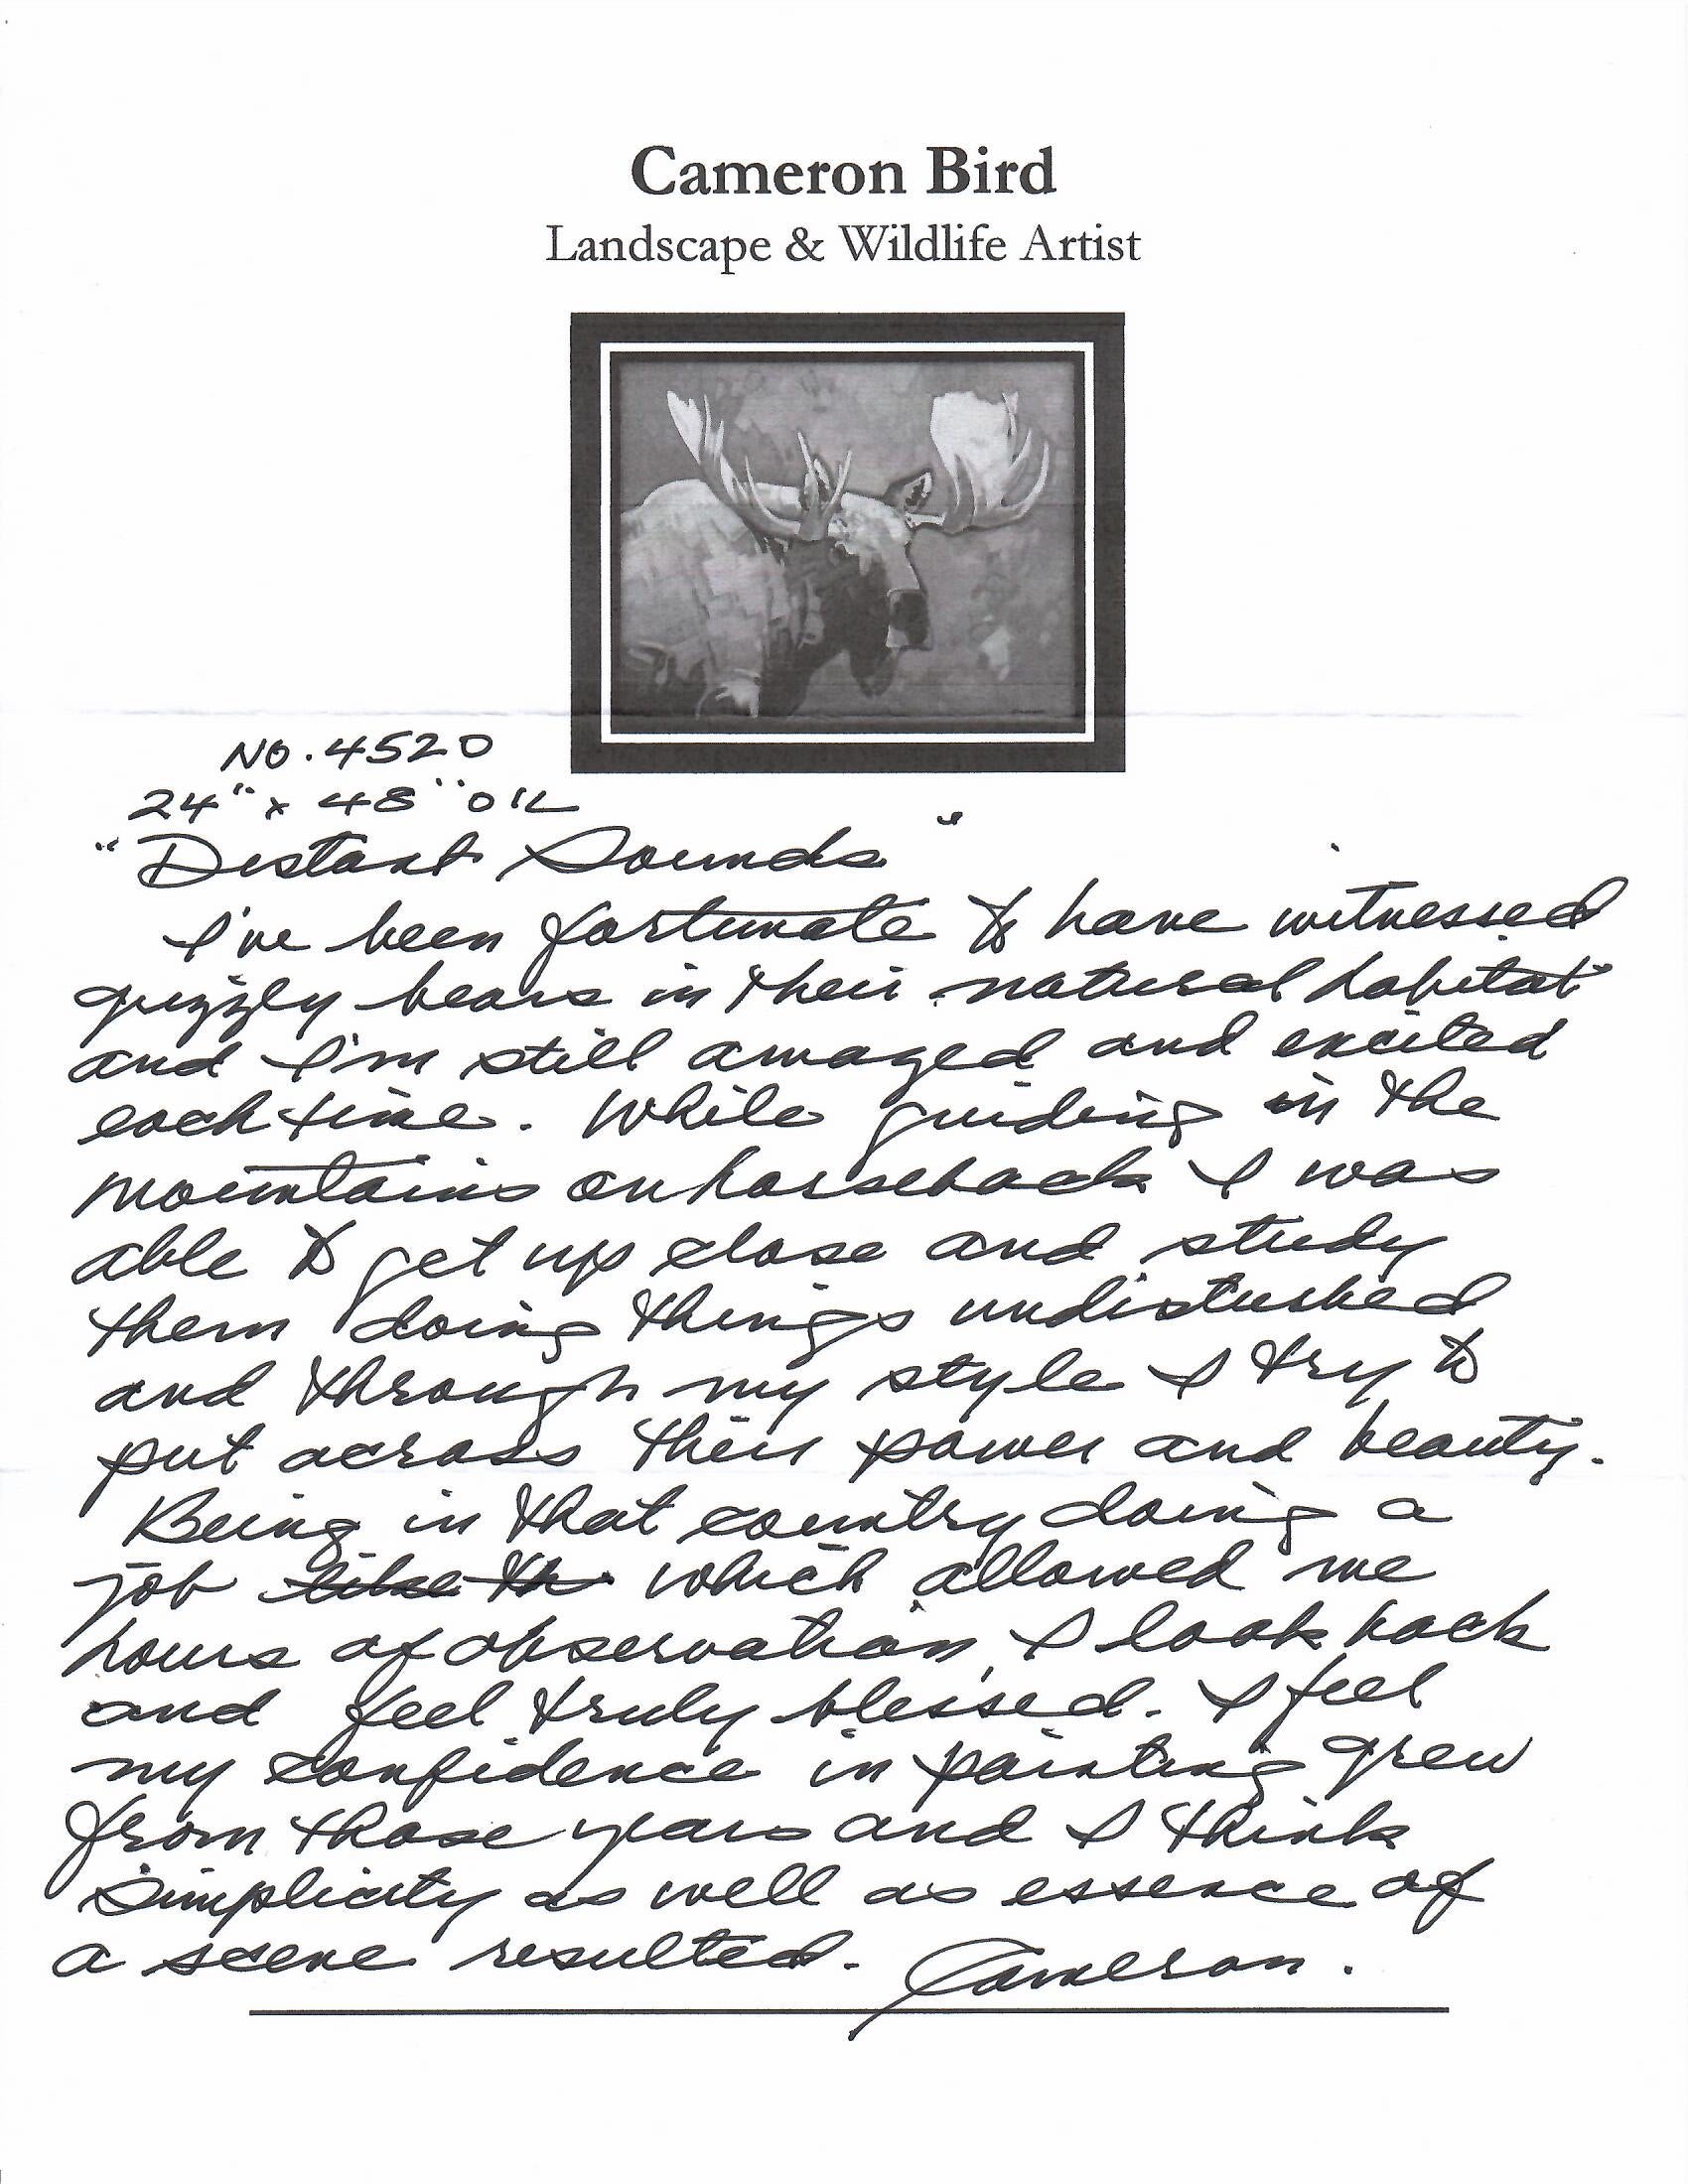 Cameron Bird
Landscape & Wildlife Artist
NO. 4520
24" x 48" OIL
"Distant Sounds"
I've been fortunate to have witnessed
grizzly bears in their natural habitat
and I'm still amazed and excited
each time. While guiding in the
mountains on horseback I was
able to get up close and study
them doing things undisturbed
and through my style I try to
put across their power and beauty.
Being in that country doing a
job like th which allowed me
hours of observation, I look back
and feel truly blessed. I feel
my confidence in painting grew
from those years and I think
simplicity as well as essence of
a scene resulted. Cameron.